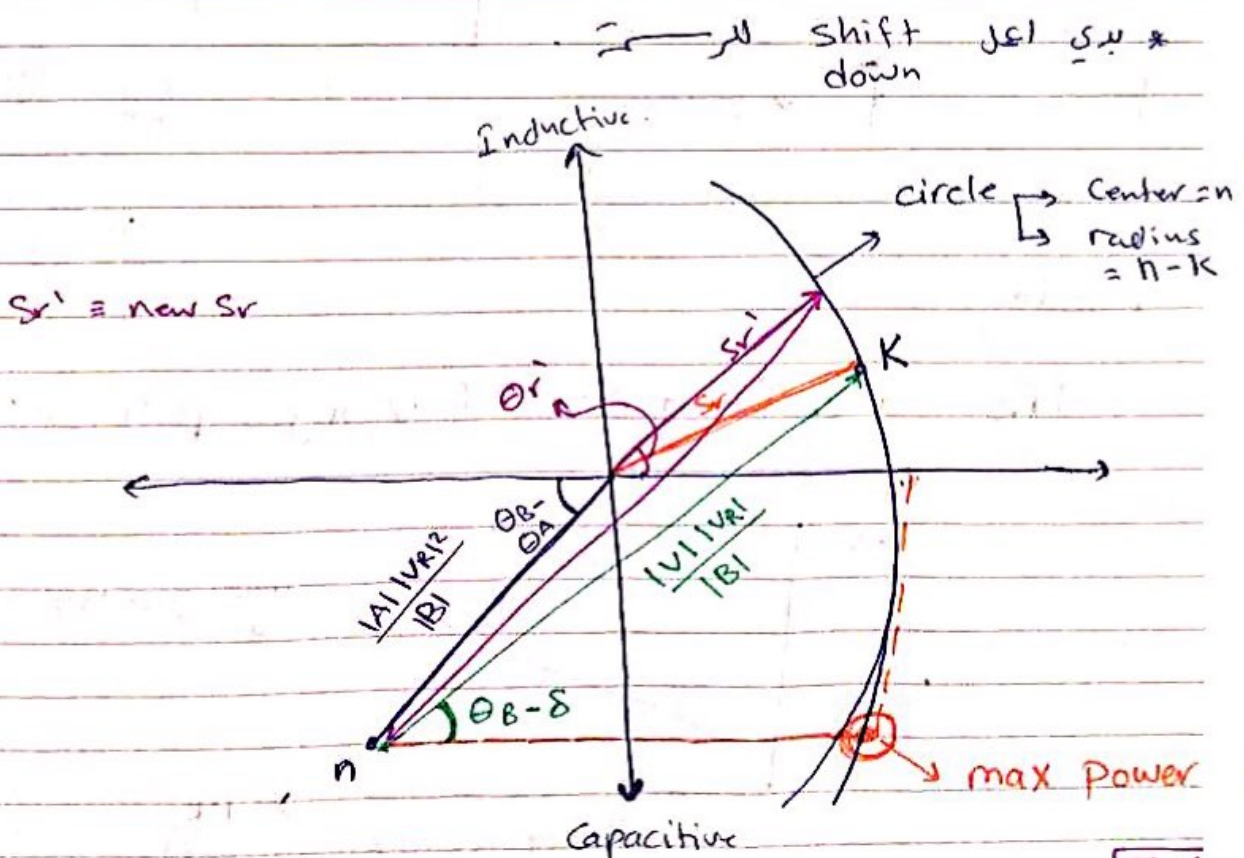 * بدي اعمل shift للرسمة
down
Inductive
circle → Center = n
↳ radius
= n - k
Sr' ≡ new Sr
Sr'
K
θr'
Sr
θB -
θA
|A| |VR|²
|B|
|V| |VR|
|B|
θB - δ
n
max power
Capacitive